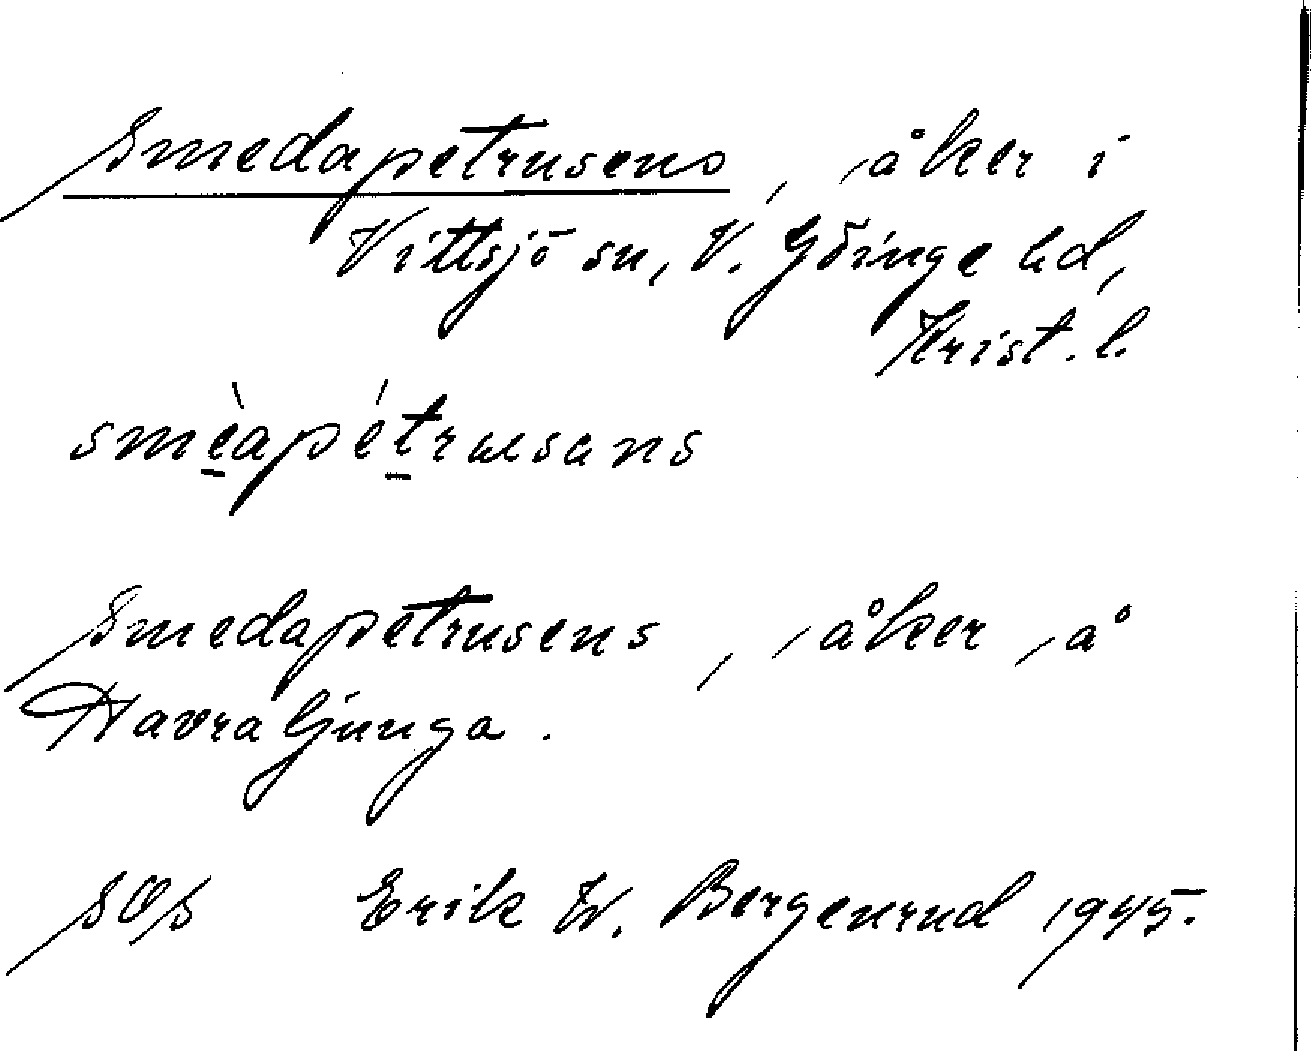 Smedapetrusens, åker i
Vittsjö sn, V. Göinge hd,
Krist. l.
smèapétrusans
Smedapetrusens, åker å
Havraljunga.
SOS Erik W. Bergenrud 1945.